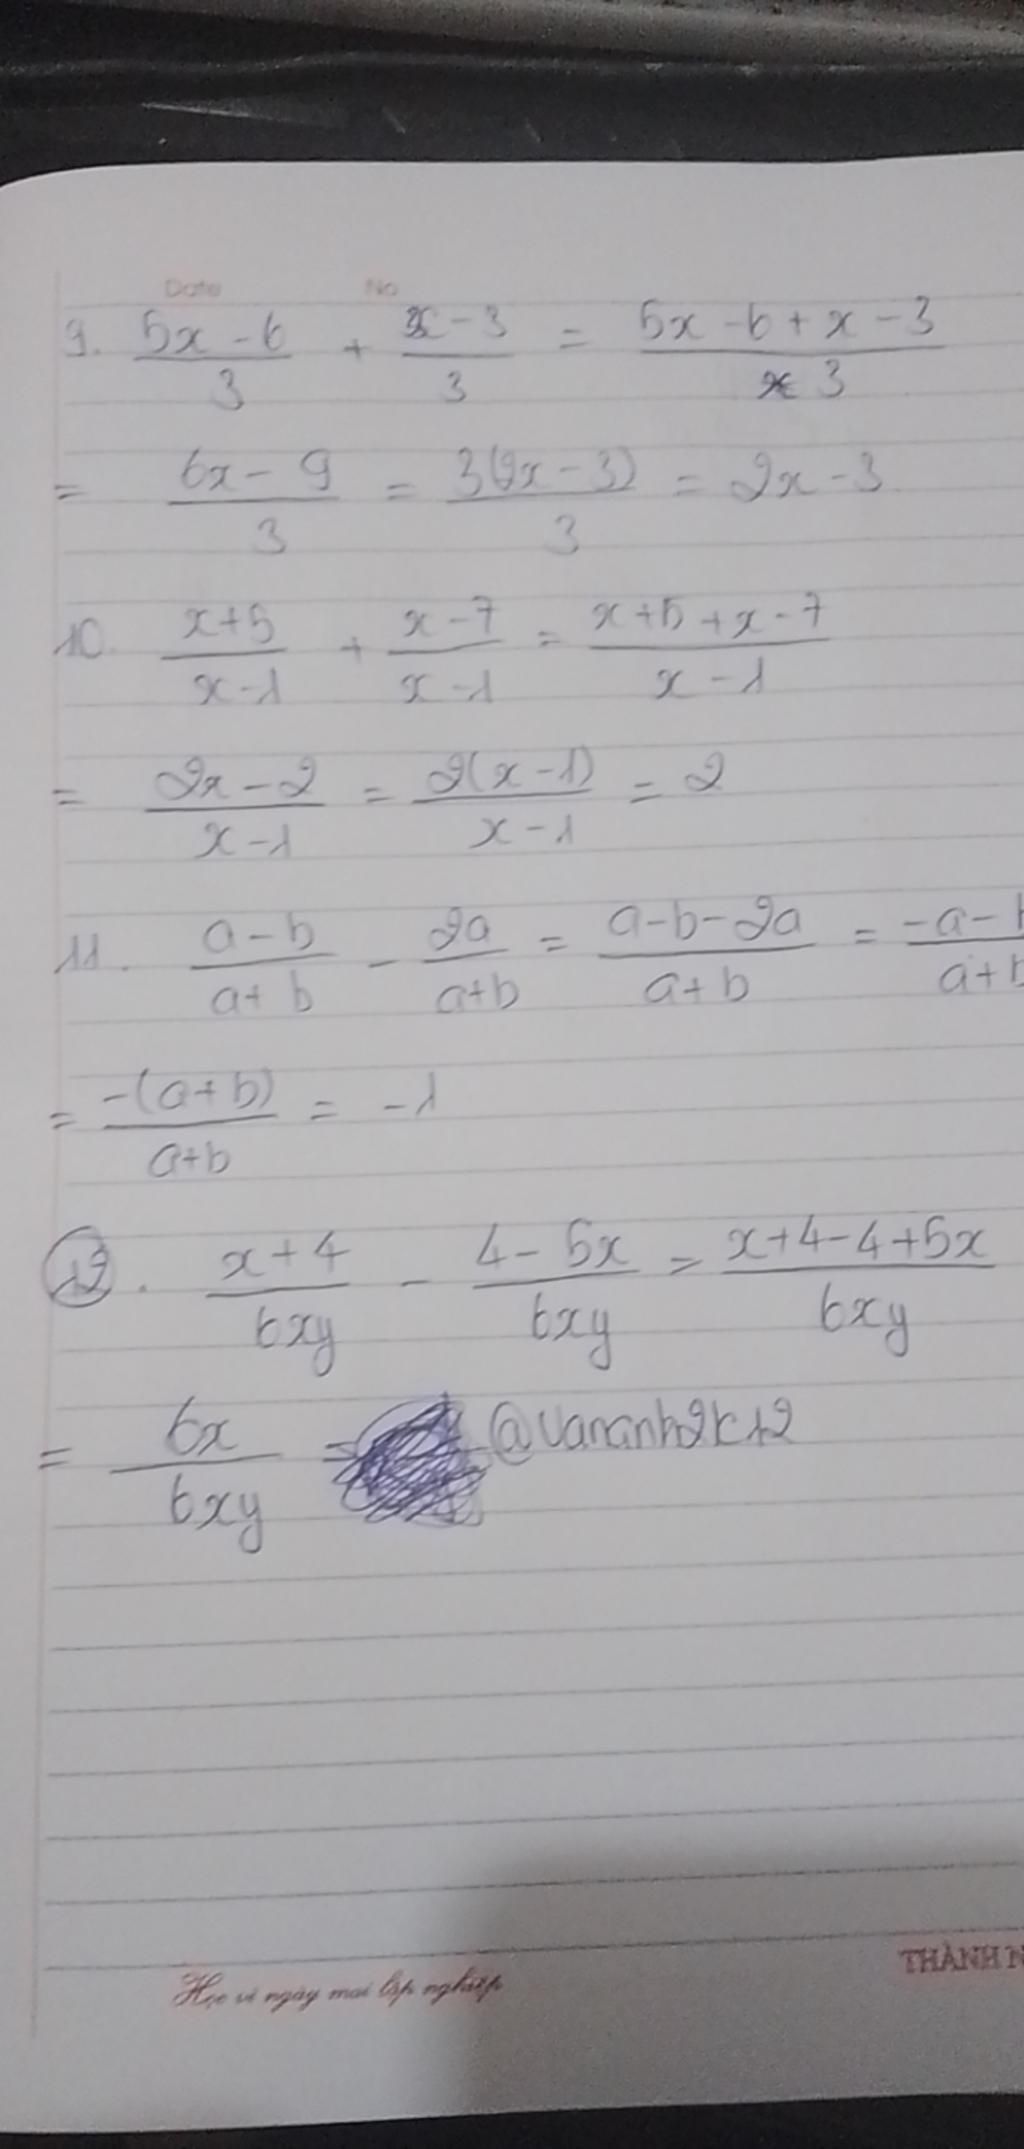 Date No
9. (5x - 6)/3 + (x - 3)/3 = (5x - 6 + x - 3)/3
= (6x - 9)/3 = 3(2x - 3)/3 = 2x - 3
10. (x+5)/(x-1) + (x-7)/(x-1) = (x+5+x-7)/(x-1)
= (2x-2)/(x-1) = 2(x-1)/(x-1) = 2
11. (a-b)/(a+b) - 2a/(a+b) = (a-b-2a)/(a+b) = (-a-b)/(a+b)
= -(a+b)/(a+b) = -1
12. (x+4)/6xy - (4-5x)/6xy = (x+4-4+5x)/6xy
= 6x/6xy = @vananh2k12
Học vì ngày mai lập nghiệp
THÀNH N